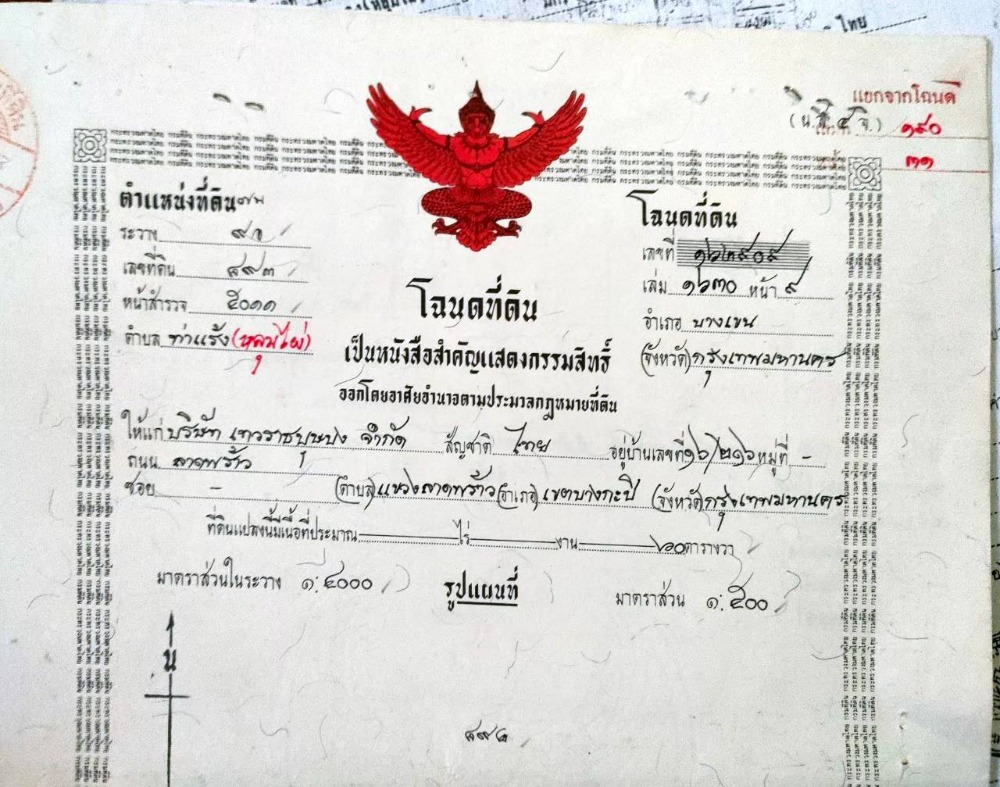 แยกจากโฉนด
(น.ส.๔ จ.) ๑๙๐
๓๑
ตำแหน่งที่ดิน
โฉนดที่ดิน
ระวาง
เลขที่
เลขที่ดิน ๘๙๓
เล่ม ๑๖๓๐ หน้า ๙
หน้าสำรวจ ๕๐๑๑
อำเภอ บางเขน
ตำบล ท่าแร้ง (หลุมไผ่)
(จังหวัด) กรุงเทพมหานคร
โฉนดที่ดิน
เป็นหนังสือสำคัญแสดงกรรมสิทธิ์
ออกโดยอาศัยอำนาจตามประมวลกฎหมายที่ดิน
ให้แก่ บริษัท เทวราชบุษบง จำกัด สัญชาติ ไทย อยู่บ้านเลขที่ ๑๖/๒๑๖ หมู่ที่ -
ถนน ลาดพร้าว
ซอย - (ตำบล) แขวงลาดพร้าว (อำเภอ) เขตบางกะปิ (จังหวัด) กรุงเทพมหานคร
ที่ดินแปลงนี้มีเนื้อที่ประมาณ ไร่ งาน ๖๐ ตารางวา
มาตราส่วนในระวาง ๑:๔๐๐๐
รูปแผนที่
มาตราส่วน ๑:๕๐๐
น